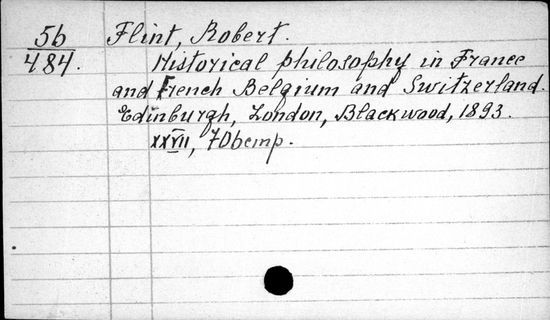 56 Flint, Robert.
484. Historical philosophy in France
and French Belgium and Switzerland.
Edinburgh, London, Blackwood, 1893.
XXVII, 706 стр.